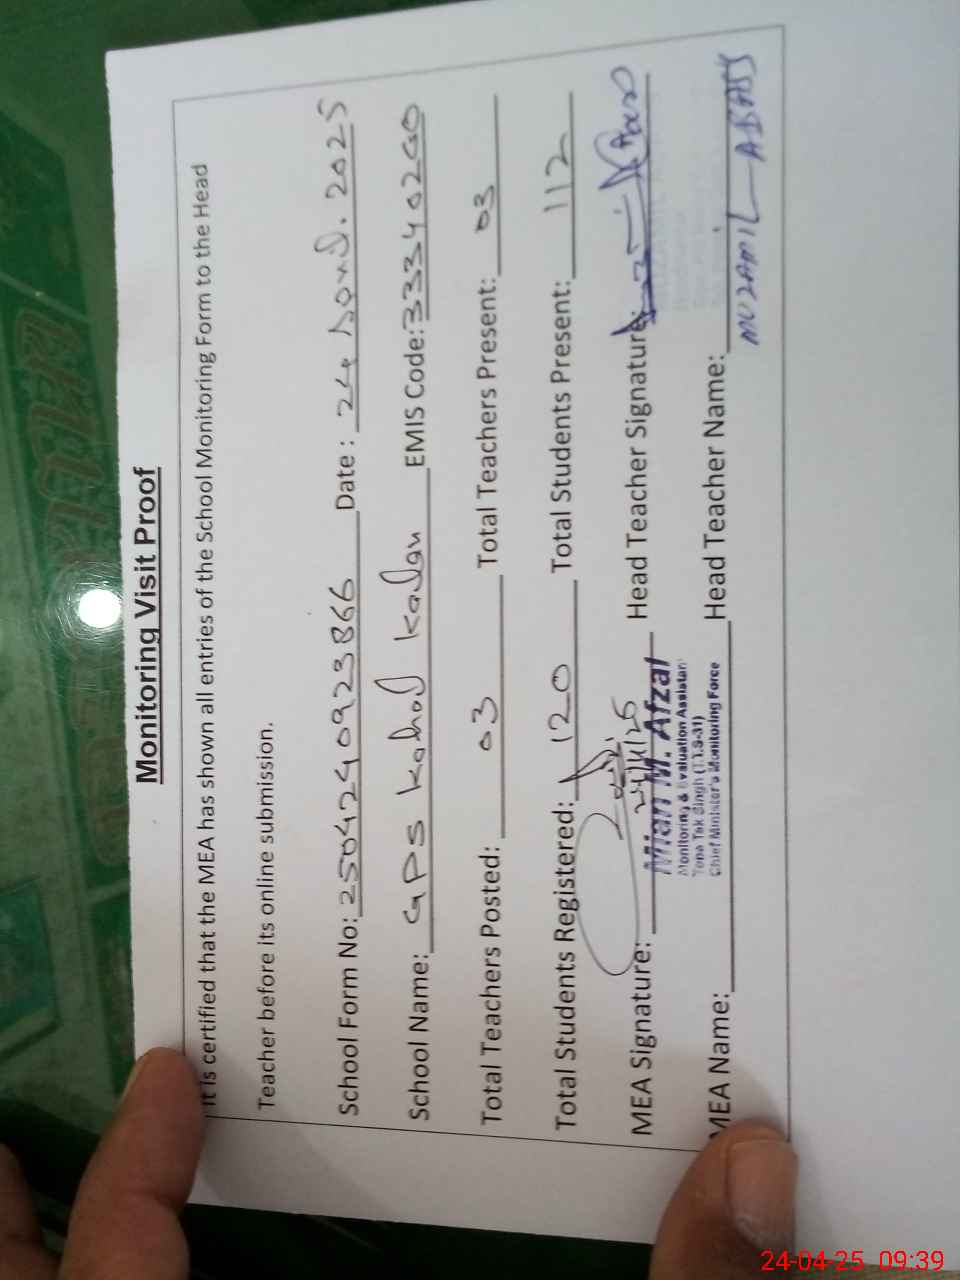 Monitoring Visit Proof
It is certified that the MEA has shown all entries of the School Monitoring Form to the Head
Teacher before its online submission.
School Form No: 2504240923866 Date : 24 April. 2025
School Name: GPS Kahol Kalan EMIS Code: 33340200
Total Teachers Posted: 03 Total Teachers Present: 03
Total Students Registered: 120 Total Students Present: 112
24/4/25
MEA Signature: Head Teacher Signature:
Mian M. Afzal
Monitoring & Evaluation Assistant
Toba Tek Singh (T.T.S-31)
Chief Minister's Monitoring Force
MEA Name: Head Teacher Name:
MUZAMIL ABASS
24-04-25 09:39